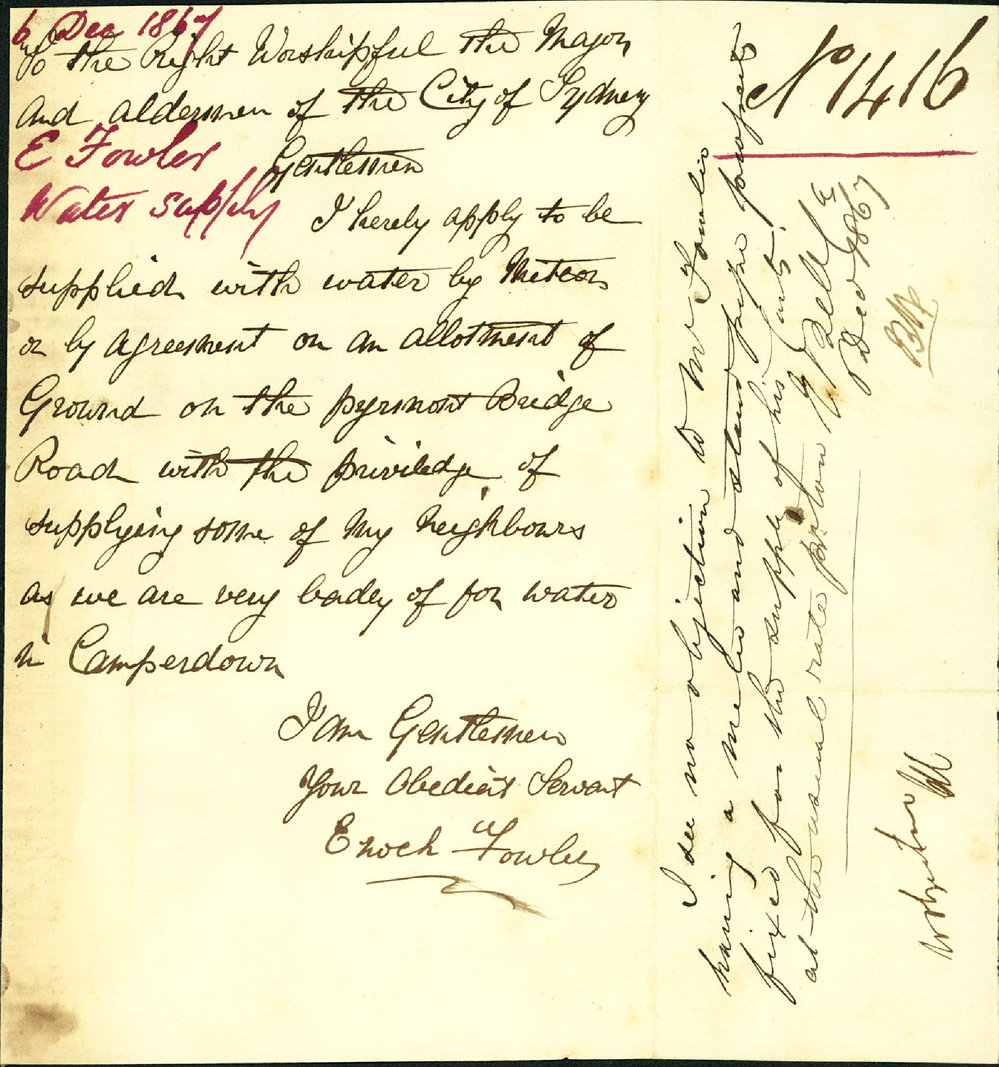 6 Dec 1867
To the Right Worshipful the Mayor
and aldermen of the City of Sydney
E Fowler
Gentlemen
Water supply
I hereby apply to be
supplied with water by Meter
or by agreement on an allotment of
Ground on the pyrmont Bridge
Road with the priviledge of
supplying some of My Neighbours
as we are very badey of for water
in Camperdown
I am Gentlemen
Your Obedient Servant
Enoch Fowler
No 1416
I see no objection to Mr Fowler
having a meter and stand pipe
fixed for the supply of his
at the usual rate
Bell
Dec 1867